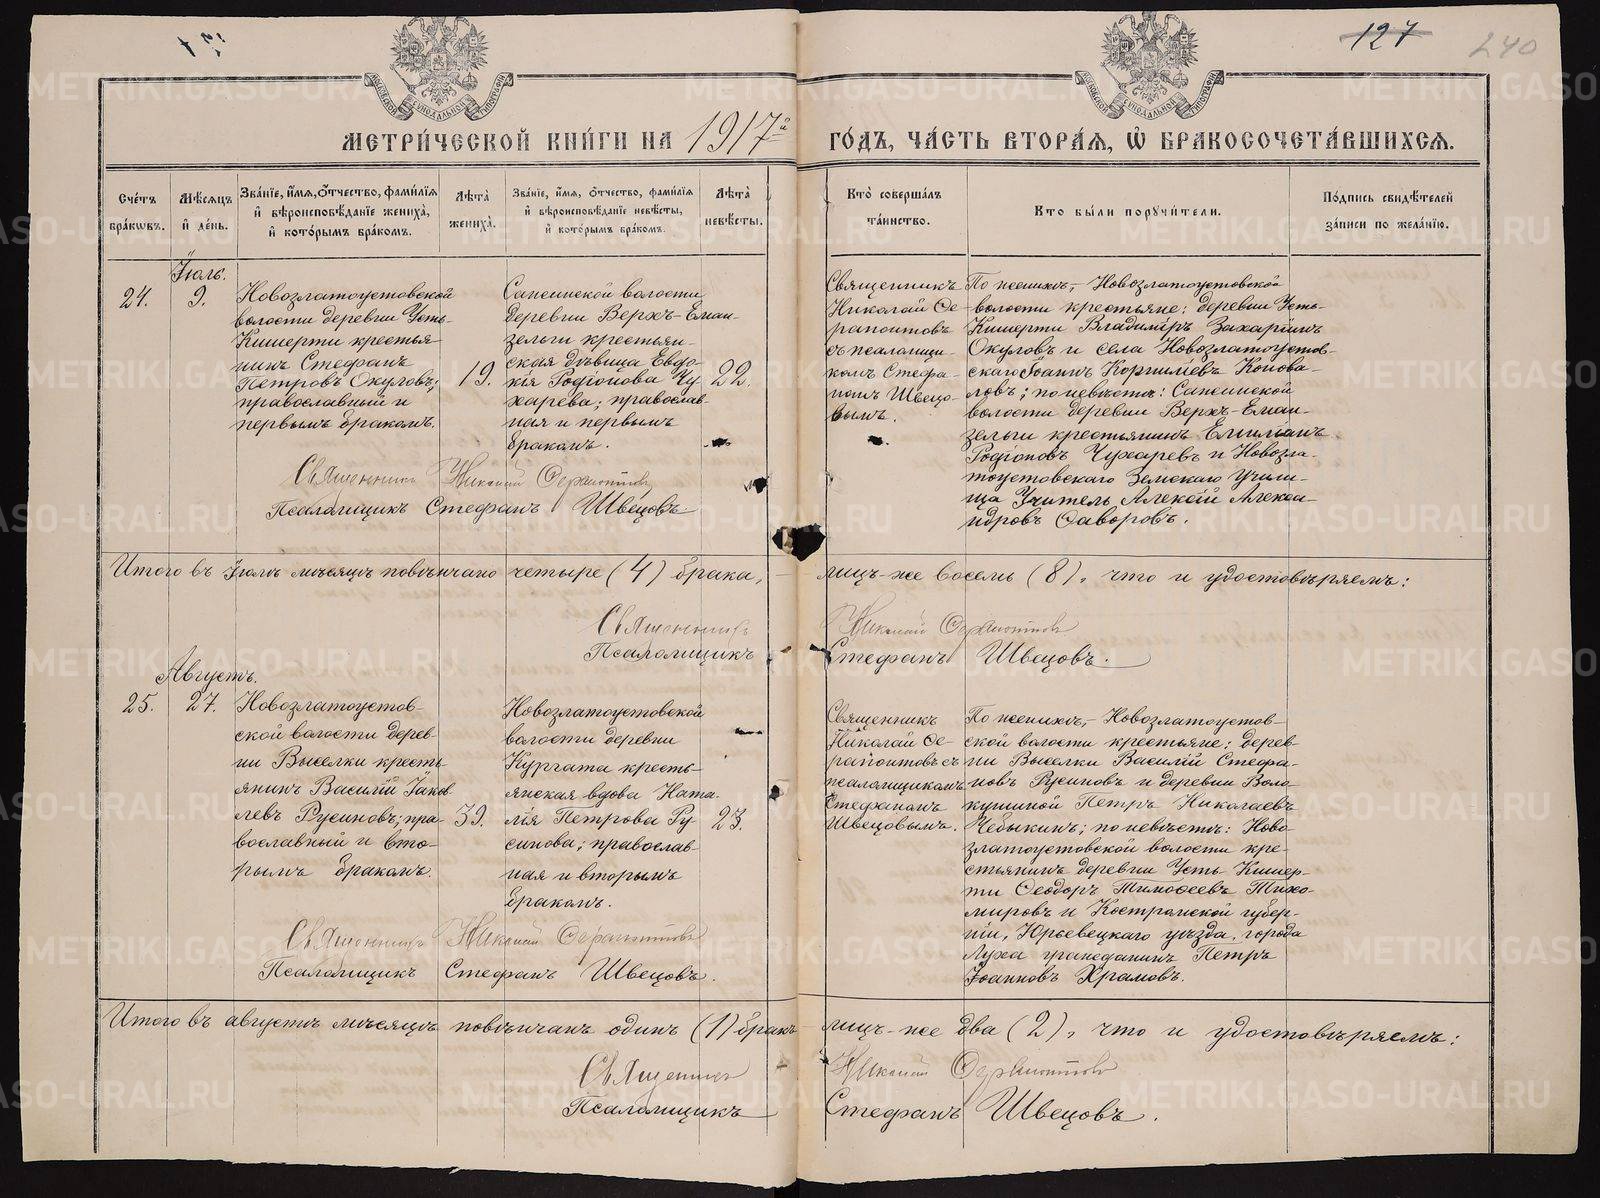 127
240
МЕТРИ́ЧЕСКОЙ КНИ́ГИ НА 1917й ГО́ДЪ, ЧА́СТЬ ВТОРА́Я, Ѿ БРАКОСОЧЕТА́ВШИХСЯ.
Сче́тъ бра́кѡвъ.
Мѣ́сяцъ и҆ де́нь.
Зва́нїе, и҆́мя, ѻ҆́тчество, фами́лїя и҆ вѣроисповѣ́данїе жениха̀, и҆ кото́рымъ бра́комъ.
Лѣ́та жениха̀.
Зва́нїе, и҆́мя, ѻ҆́тчество, фами́лїя и҆ вѣроисповѣ́данїе невѣ́сты, и҆ кото́рымъ бра́комъ.
Лѣ́та невѣ́сты.
Кто̀ соверша́лъ та́инство.
Кто бы́ли поручи́тели.
По́дпись свидѣ́телей за́писи по жела́нїю.
Іюль.
24.
9.
Новозлатоустовской
волости деревни Усть-
Кишерти крестья
нинъ Стефанъ
Петровъ Окуловъ;
православный и
первымъ бракомъ.
19.
Сапсинской волости
деревни Верхъ-Еман-
зельги крестьян-
ская дѣвица Евдо-
кія Родіонова Чу-
харева; православ-
ная и первымъ
бракомъ.
22.
Священникъ
Николай Се-
рапонтовъ
съ псаломщи-
комъ Стефа-
номъ Швецо-
вымъ.
По женихѣ,- Новозлатоустовской
волости крестьяне: деревни Усть-
Кишерти Владиміръ Захаріинъ
Окуловъ и села Новозлатоустов-
скаго Іоаннъ Корниліевъ Конова-
ловъ; по невѣстѣ: Сапсинской
волости деревни Верхъ-Еман-
зельги крестьянинъ Емиліанъ
Родіоновъ Чухаревъ и Новозла-
тоустовскаго Земскаго Учили-
ща Учитель Алексій Алекса-
ндровъ Саворовъ.
Священникъ Николай Серапонтовъ
Псаломщикъ Стефанъ Швецовъ
Итого въ Іюлѣ мѣсяцѣ повѣнчано четыре (4) брака, лицъ-же восемь (8), что и удостовѣряемъ:
Священникъ Николай Серапонтовъ
Псаломщикъ Стефанъ Швецовъ.
Августъ.
25.
27.
Новозлатоустов-
ской волости дерев-
ни Выселки кресть-
янинъ Василій Іаков
левъ Русиновъ; пра-
вославный и вто-
рымъ бракомъ.
39.
Новозлатоустовской
волости деревни
Кургата кресть-
янская вдова Ната-
лія Петрова Ру-
синова; православ-
ная и вторымъ
бракомъ.
23.
Священникъ
Николай Се-
рапонтовъ съ
псаломщикомъ
Стефаномъ
Швецовымъ.
По женихѣ,- Новозлатоустов-
ской волости крестьяне: дерев-
ни Выселки Василій Стефа-
новъ Русиновъ и деревни Воло-
кушиной Петръ Николаевъ
Чебыкинъ; по невѣстѣ: Ново-
златоустовской волости кре-
стьянинъ деревни Усть-Кишер-
ти Ѳеодоръ Тимоѳеевъ Тихо-
мировъ и Костромской губер-
ніи, Юрьевецкаго уѣзда, города
Луха гражданинъ Петръ
Іоанновъ Храмовъ.
Священникъ Николай Серапонтовъ
Псаломщикъ Стефанъ Швецовъ.
Итого въ августѣ мѣсяцѣ повѣнчанъ одинъ (1) бракъ лицъ-же два (2), что и удостовѣряемъ:
Священникъ Николай Серапонтовъ
Псаломщикъ Стефанъ Швецовъ.
METRIKI.GASO-URAL.RU